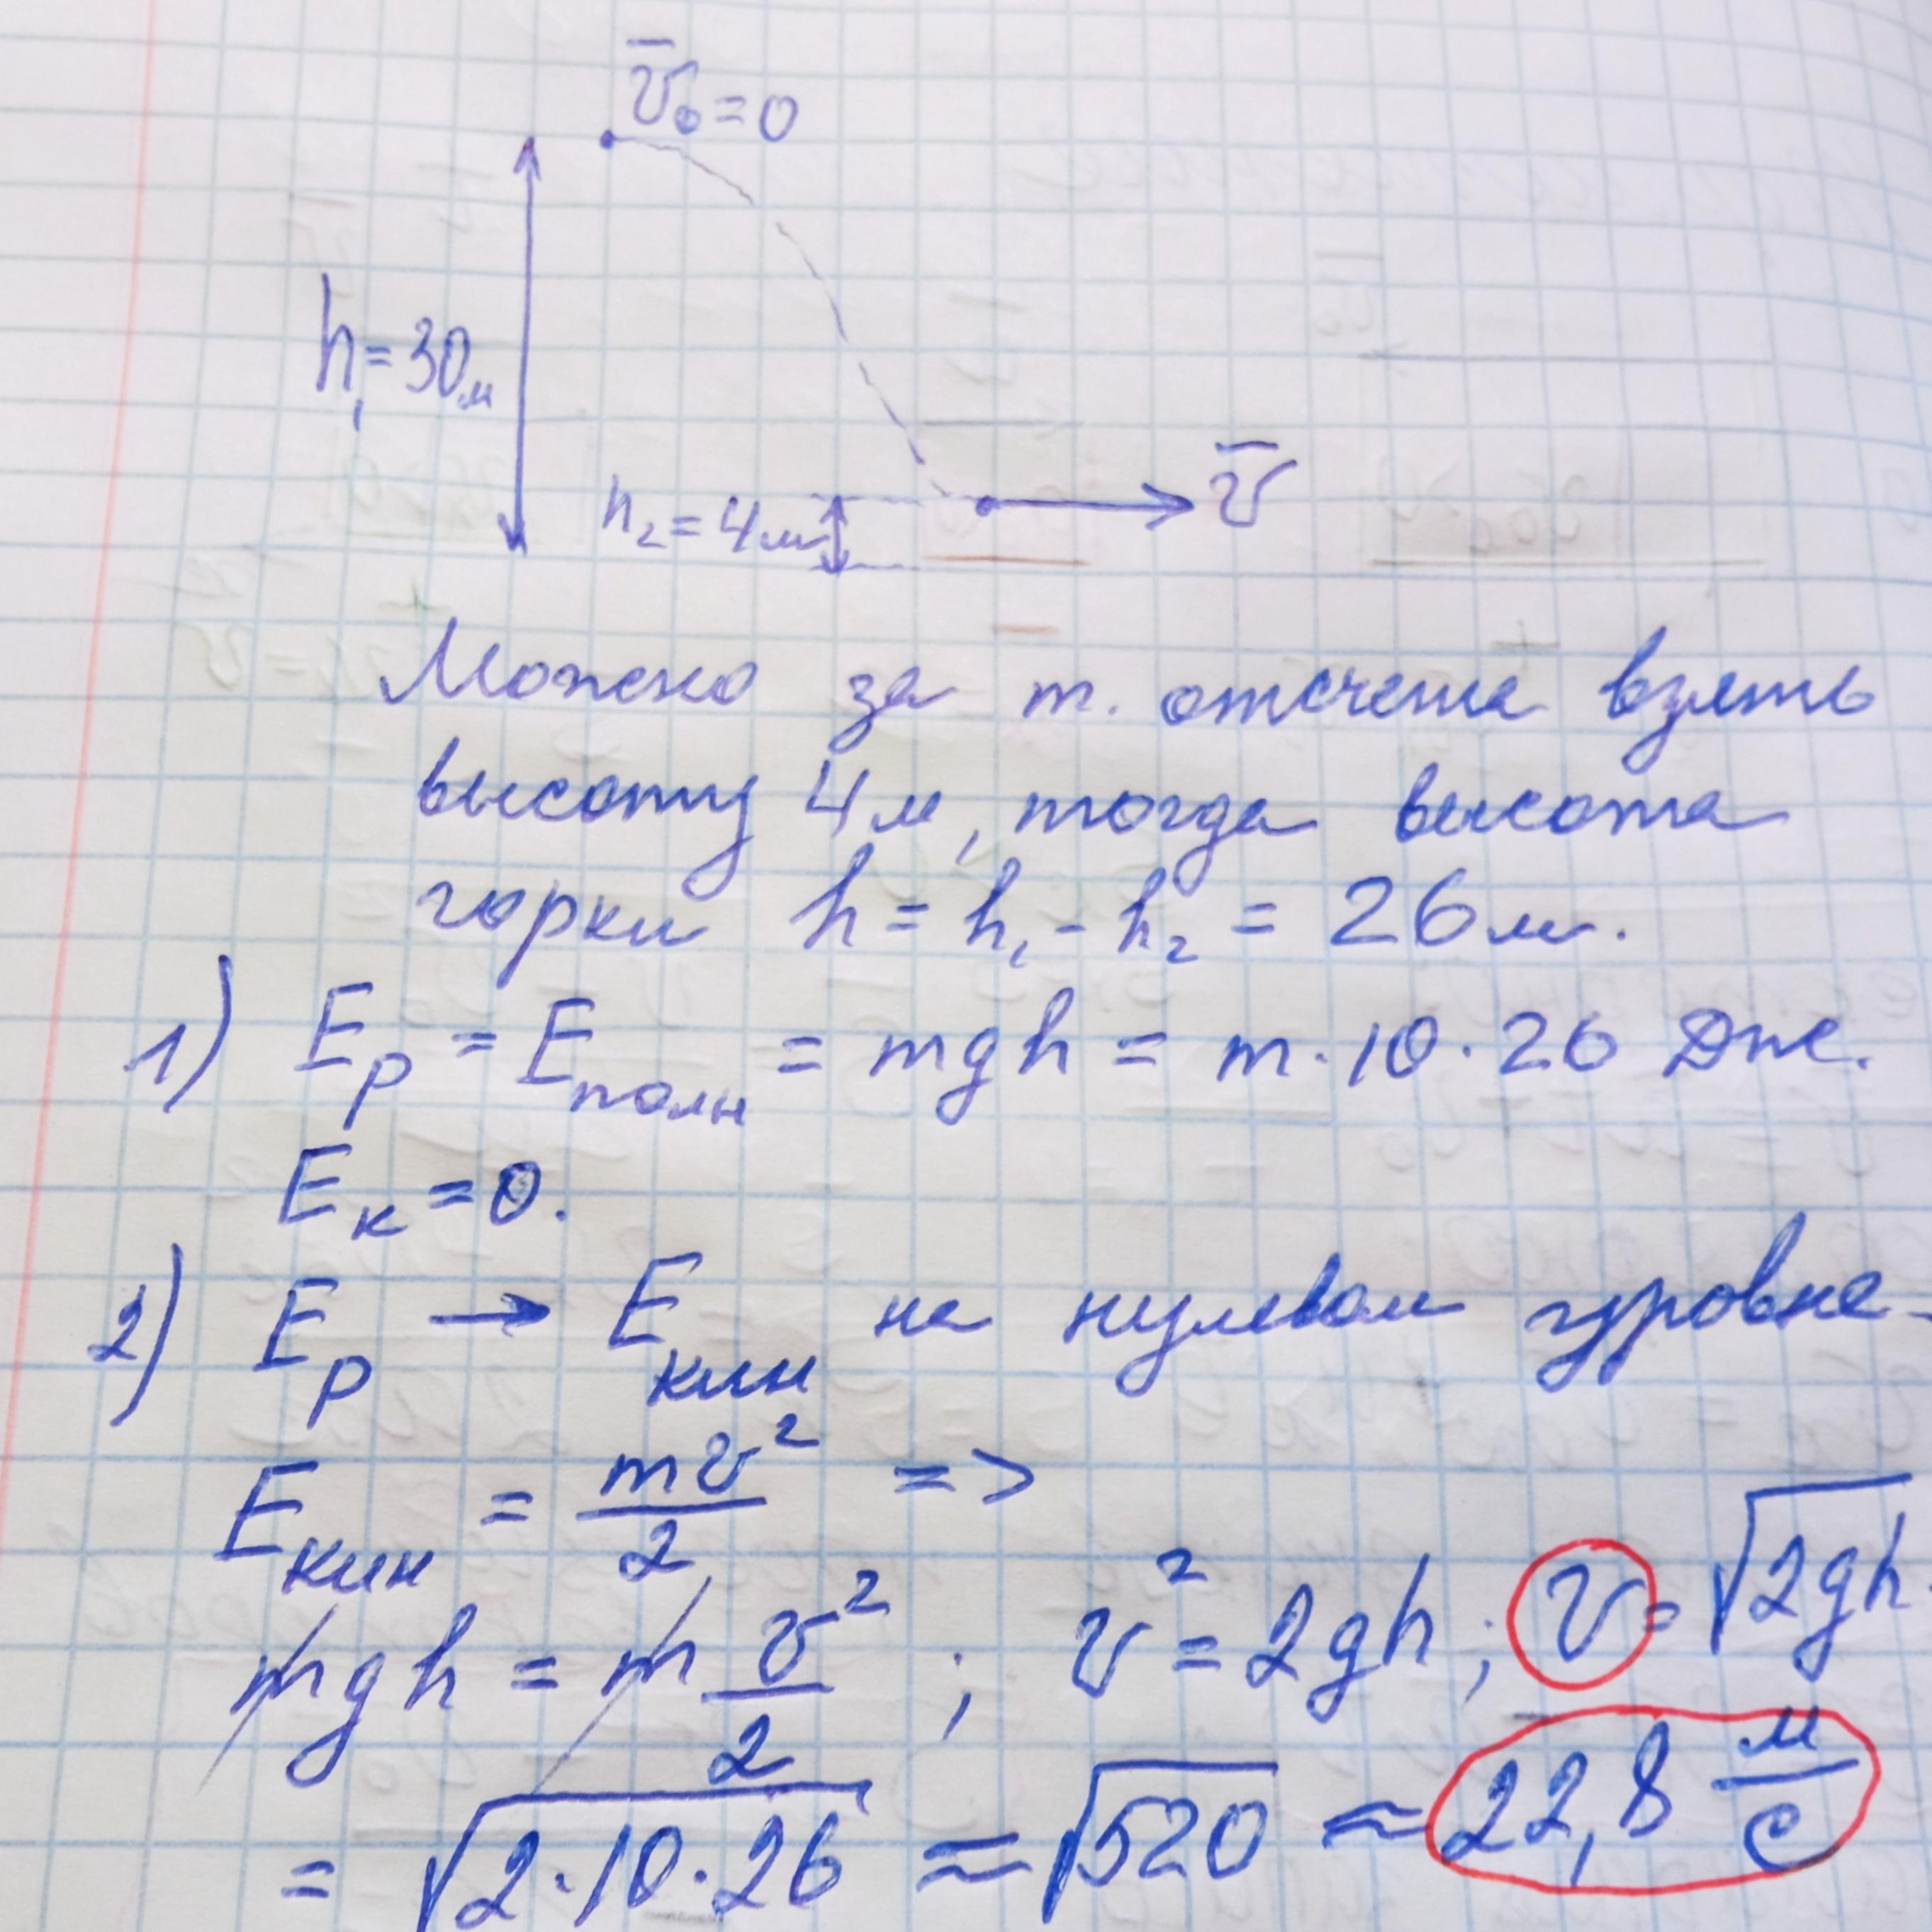 v̅₀ = 0
h₁ = 30м
h₂ = 4м
v̅
Можно за т. отсчета взять
высоту 4м, тогда высота
горки h = h₁ - h₂ = 26 м.
1) Eр = Eполн = mgh = m·10·26 Дж.
Eк = 0.
2) Eр → Eкин на нулевом уровне.
Eкин = mv²/2 =>
mgh = m v²/2 ; v² = 2gh ; v = √2gh
= √2·10·26 ≈ √520 ≈ 22,8 м/с